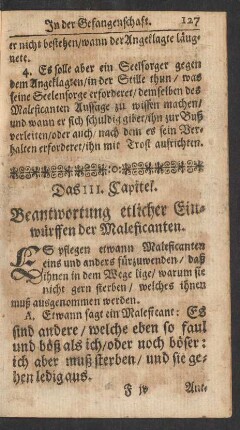 In der Gefangenschaft. 127
er nicht bestehen/wann der Angeklagte läug-
nete.
4. Es solle aber ein Seelsorger gegen
dem Angeklagten/in der Stille thun/ was
seine Seelensorge erforderet/ dem selben des
Maleficanten Aussage zu wissen machen/
und wann er sich schuldig gibet/ ihn zur Buß
verleiten/oder auch/ nach dem es sein Ver-
halten erforderet/ihn mit Trost aufrichten.
Das III. Capitel.
Beantwortung etlicher Ein-
würffen der Maleficanten.
ES pflegen etwann Maleficanten
eins und anders fürzuwenden/ daß
ihnen in dem Wege lige/ warum sie
nicht gern sterben/ welches ihnen
muß ausgenommen werden.
A. Etwann sagt ein Maleficant: Es
sind andere/ welche eben so faul
und böß als ich/oder noch böser:
ich aber muß sterben/ und sie ge-
hen ledig aus.
F iv Ant-